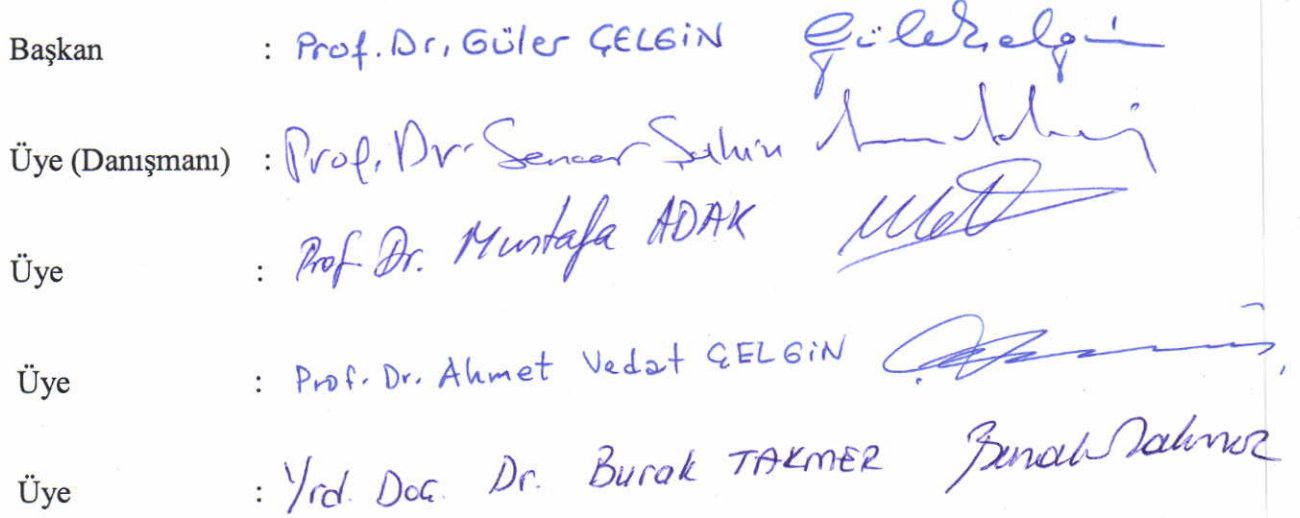 Başkan : Prof. Dr. Güler ÇELGİN
Üye (Danışmanı) : Prof. Dr. Sencer Şahin
Üye : Prof. Dr. Mustafa ADAK
Üye : Prof. Dr. Ahmet Vedat ÇELGİN
Üye : Yrd. Doç. Dr. Burak TAKMER Burak Takmer